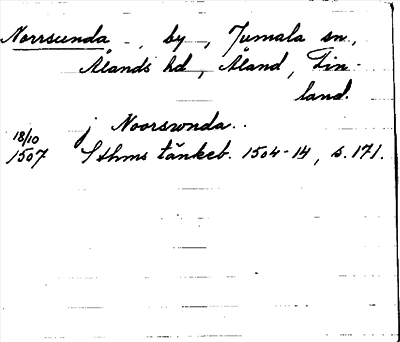 Norrsunda, by, Jumala sn.,
Ålands hd, Åland, Fin-
land.
j Noorswnda..
18/10
1507 Sthms tänkeb. 1504-14, s. 171.